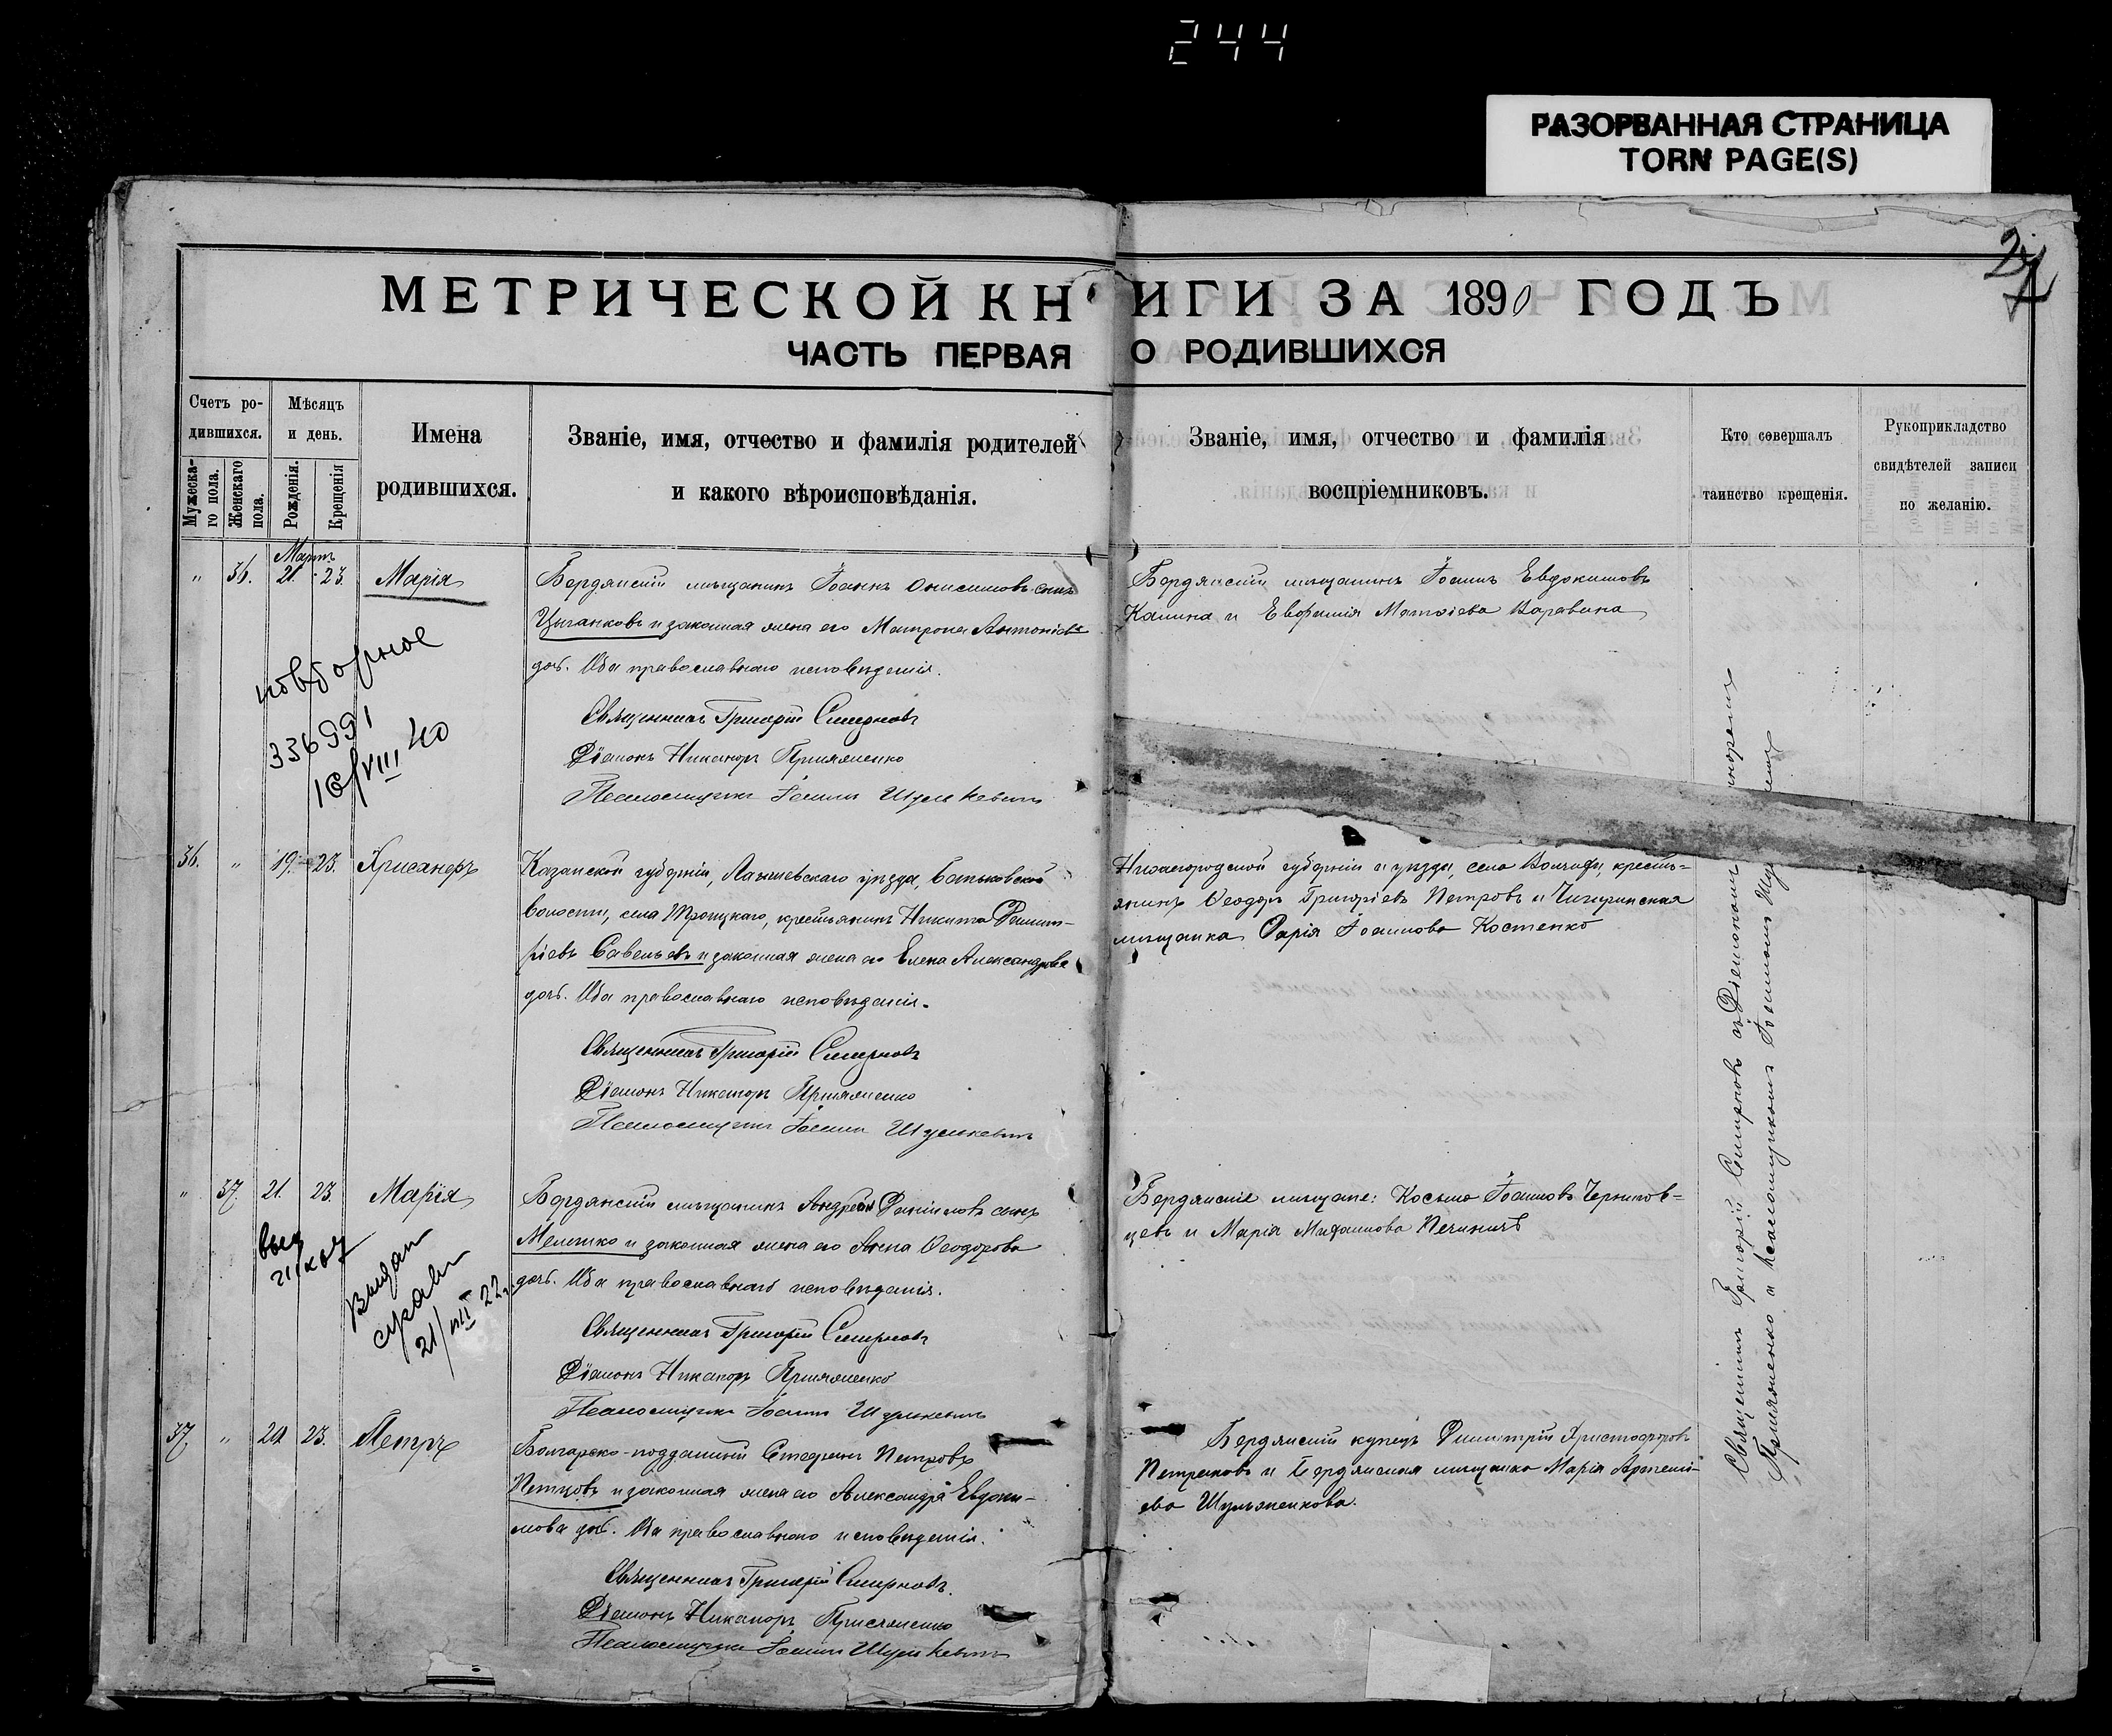 244
РАЗОРВАННАЯ СТРАНИЦА
TORN PAGE(S)
27
МЕТРИЧЕСКОЙ КНИГИ ЗА 1890 ГОДЪ
ЧАСТЬ ПЕРВАЯ О РОДИВШИХСЯ
Счетъ ро-
дившихся.
Мужеска-
го пола.
Женскаго
пола.
Мѣсяцъ
и день.
Рожденія.
Крещенія
Имена
родившихся.
Званіе, имя, отчество и фамилія родителей
и какого вѣроисповѣданія.
Званіе, имя, отчество и фамилія
воспріемниковъ.
Кто совершалъ
таинство крещенія.
Рукоприкладство
свидѣтелей записи
по желанію.
Мартъ
" 36. 21. 23. Марія
Бердянскій мѣщанинъ Іоаннъ Онисимовъ сынъ
Цыганковъ и законная жена его Матрона Антоніева
доч. Оба православнаго исповѣданія.
Священникъ Григорій Смирновъ
Діаконъ Никаноръ Приляженко
Псаломщикъ Іоаннъ Шулькевичъ
Бердянскій мѣщанинъ Іоаннъ Евдокимовъ
Калина и Евфимія Матѳіева Варавина
повторное
336991
16/VIII 40
36. " 19. 23. Хрисанѳъ
Казанской губерніи, Лаишевскаго уѣзда,
волости, села Троицкаго, крестьянинъ Никита Димит-
ріевъ Савельевъ и законная жена его Елена Александрова
доч. Оба православнаго исповѣданія.
Священникъ Григорій Смирновъ
Діаконъ Никаноръ Приляженко
Псаломщикъ Іоаннъ Шулькевичъ
Нижегородской губерніи и уѣзда, села кресть-
янинъ Ѳеодоръ Григоріевъ Петровъ и Чигиринская
мѣщанка Дарія Іоаннова Костенко
" 37. 21. 23. Марія
Бердянскій мѣщанинъ Андрей Даніиловъ сынъ
Мелешко и законная жена его Анна Ѳеодорова
доч. Оба православнаго исповѣданія.
Священникъ Григорій Смирновъ
Діаконъ Никаноръ Приляженко
Псаломщикъ Іоаннъ Шулькевичъ
Бердянскіе мѣщане: Косьма Іоанновъ Чернигов-
цевъ и Марія
Выдан
справк
21/VII 22.
37. " 20 23. Петръ
Болгарско-подданный Стефанъ Петровъ
Петковъ и законная жена его Александра Евдоки-
мова доч. Оба православнаго исповѣданія.
Священникъ Григорій Смирновъ.
Діаконъ Никаноръ Приляженко
Псаломщикъ Іоаннъ Шулькевичъ
Бердянскій купецъ Димитрій Христофоровъ
Петраковъ и Бердянская мѣщанка Марія Арсеніе-
ва Шульженкова.
Священникъ Григорій Смирновъ съ Діакономъ
Приляженко и псаломщикомъ Іоанномъ